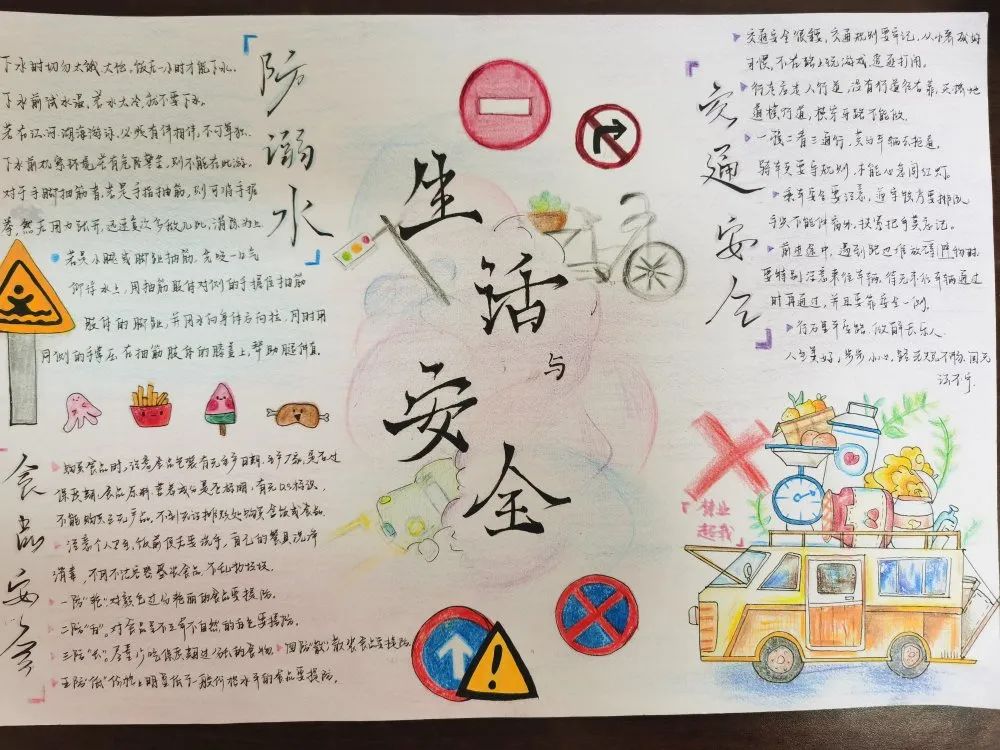 生活与安全
防溺水
下水时切勿太饿、太饱。饭后一小时才能下水。
下水前试水温,若水太冷,就不要下水。
若在江、河、湖、海游泳,必须有伴相伴,不可单独。
下水前观察环境,若有危险警告,则不能在此游。
对于手脚抽筋者,若是手指抽筋,则可将手握
拳,然后用力张开,迅速反复多做几次,消除为止。
若是小腿或脚趾抽筋,先吸一口气
仰浮水上,用抽筋肢体对侧的手握住抽筋
肢体的脚趾,并用力向身体方向拉,同时用
同侧的手掌压在抽筋肢体的膝盖上,帮助腿伸直。
交通安全
交通安全很重要,交通规则要牢记,从小养成好
习惯,不在路上玩游戏、追逐打闹。
行走应走人行道,没有行道往右靠,天桥地
道横行道,横穿马路不能做。
一停二看三通行,莫与车辆去抢道
骑车更要守规则,不能心急闯红灯。
乘车安全要注意,遵守秩序要排队
手头不能伸窗外,扶紧把手莫忘记。
前进途中,遇到路边堆放障碍物时,
要特别注意来往车辆,待无来往车辆通过
时再通过,并且要靠安全一侧。
行万里平安路,做百年长乐人
人生美好,步步小心
食品安全
购买食品时,注意食品包装有无生产日期、生产厂家,是否过
保质期,食品原料、营养成分是否标明,有无QS标识,
不能购买三无产品。
注意个人卫生,饭前便后要洗手,自己的餐具洗净
消毒,不用不洁容器盛装食品,不乱扔垃圾。
一防"艳"。对颜色过分艳丽的食品要提防。
二防"白"。对食品呈不正常不自然的白色要提防。
三防"长"。尽量少吃保质期过长的食物 四防"散"散装食品要提防
五防"低"价格上明显低于一般价格水平的食品要提防。